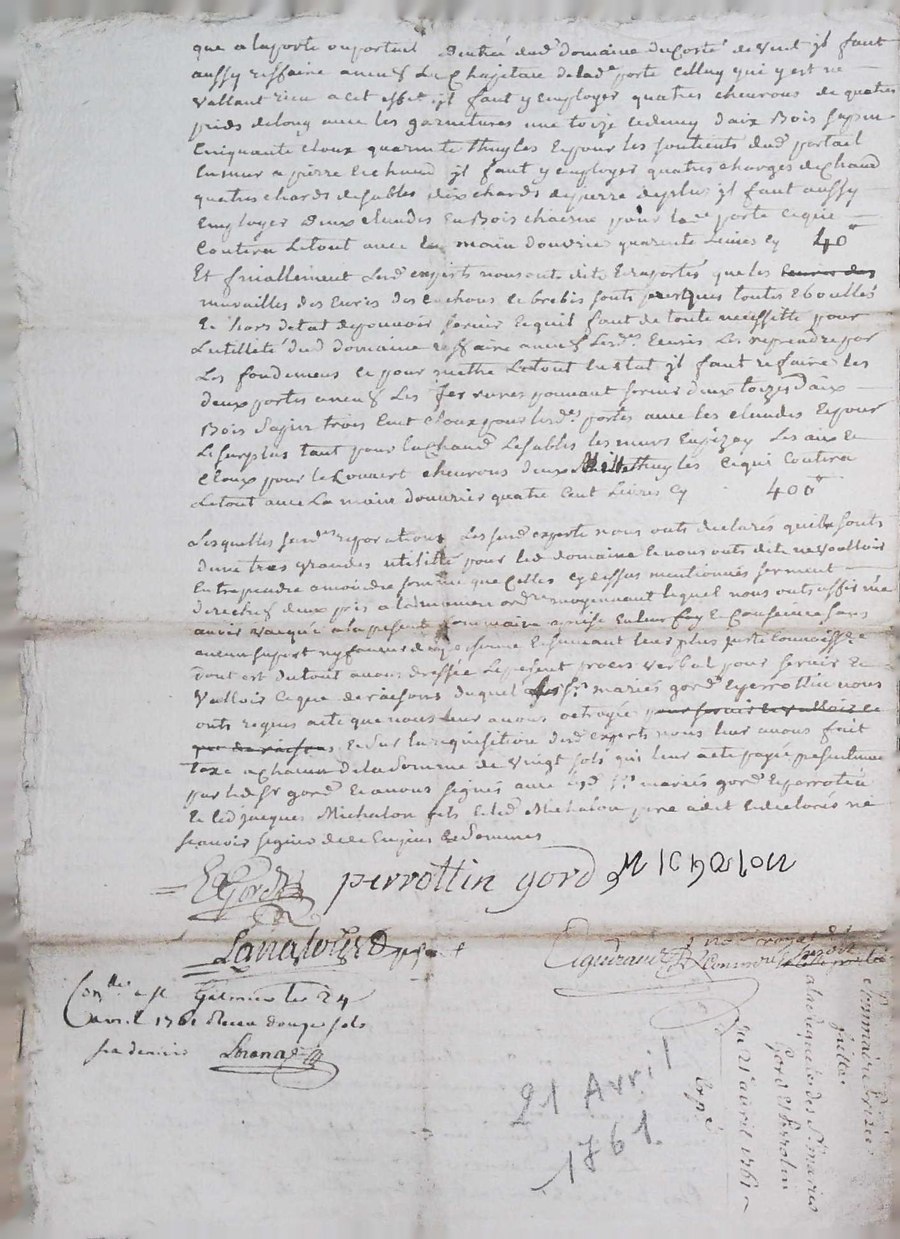 que a laporte ou portail dentrée dud. domaine du Costé de vent jl faut
aussy reffaire a neuf Le Chapiteau delade porte Celluy qui y est ne
vallant rien a cet effet jl faut y employer quatres cheurons de quatres
pieds delong avec les garnitures une toize et demy daix Bois sapin
Cinquante Cloux quarente thuyles Et pour les soutients dud portail
En mur a pierre Et chaud jl faut y employer quatres charges de Chaud
quatres chards de sables dix chards de pierre de plus jl faut aussy
Employer deux cloudes En Bois chacune pour lade porte Ce qui
Coutera Letout avec la main douvrier quarente Livres Cy 40
Et finiallement Lesd. experts nous onts dits Et raportés que les
murailles des Euries des cochons et brebis sonts presques toutes Eboullés
Et hors detat de pouvoir servir Et quil faut de toute necessitté pour
Lutillité dud domaine reffaire a neuf Lesd. Ecuries Les reprendre par
Les fondemens Et pour metre Letout En Etat jl faut refaire les
deux portes a neuf Les ferrures pouvant servir deux toizes daix
Bois Sapin trois Cent Cloux pour lesd. portes avec les cloudes Et pour
Le surplus tant pour la Chaud Le sables les murs En pizay Les aix Et
Cloux pour le Couvert cheurons deux Mille thuyles Ce qui Coutera
Letout avec La main douvrier quatre Cent Livres Cy 400
Lesquelles susdes reparations Les susd experts nous onts declarés quils sonts
dune tres grandes utillitté pour led domaine Et nous onts dits ne voulloir
Entreprendre a moindre somme que Celles Cy dessus mentionnés serment
derechef deux pris a la maniere ordre moyennant lequel nous onts affirmé
avoir vacqué a la present sommaire aprise En leur foy Et Conscience sans
aucun suport ny faveur de personne Et suivant leur plus juste Connoissce
Dont et du tout avons dressé Le present proces verbal pour servir Et
valloir Ce que de raisons duquel les sr. mariés gord Et perrottin nous
onts requis acte que nous leur avons octroyée pour servir Et valloir ce
que de raisons Et sur la requisition desd experts nous leur avons fait
taxe a chacun de la Somme de vingt sols qui leur a ete payé presentement
par led Sr gord Et avons signés avec lesd. sr. mariés gord Et perrotin
Et led jacques Michalon fils Et led Michalon pere a dit Et declarés ne
scavoir signer de ce Enquis Et Sommes
Gord perrottin gord MICHALON
Lanalouze
Eigueirande no re royal
Commre
Con lle a st Galmier les 24
avril 1761 Receu douze sols
six deniers Lorang
21 Avril
1761.
sommaire Prizée
faitte
a la requete des Sr. mariés
Gord Et Perrotin
Du 21e avril 1761
Exp. é